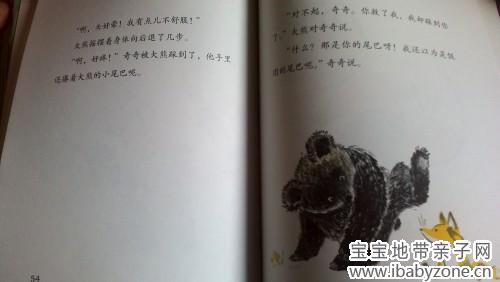 “啊，头好晕！我有点儿不舒服！”
大熊摇摆着身体向后退了几步。
“啊，好疼！”奇奇被大熊踩到了，他手里
还捧着大熊的小尾巴呢。
54
“对不起，奇奇。你救了我，我却踩到你
了，”大熊对奇奇说。
“什么？那是你的尾巴呀！我还以为是饭
团的尾巴呢，”奇奇说。
宝宝地带亲子网
www.ibabyzone.cn